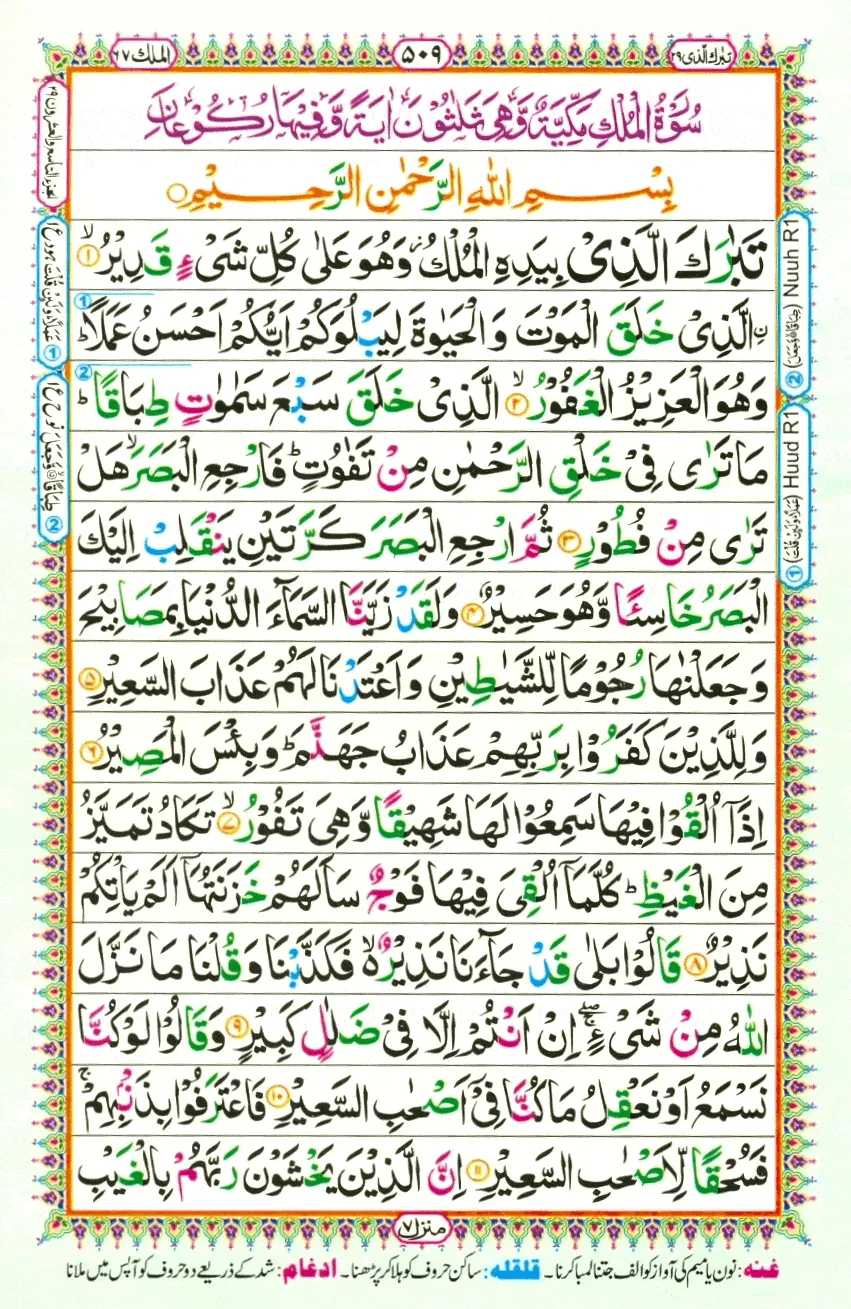 تبٰرك الذی ۲۹
۵۰۹
الملك ۶۷
سُوْرَةُ الْمُلْكِ مَكِّيَّةٌ وَّهِيَ ثَلٰثُوْنَ اٰيَةً وَّفِيْهَا رُكُوْعَانِ
بِسْمِ اللّٰهِ الرَّحْمٰنِ الرَّحِيْمِ
تَبٰرَكَ الَّذِيْ بِيَدِهِ الْمُلْكُ ؗ وَهُوَ عَلٰى كُلِّ شَيْءٍ قَدِيْرُ ۙ ۱
ِن الَّذِيْ خَلَقَ الْمَوْتَ وَالْحَيٰوةَ لِيَبْلُوَكُمْ اَيُّكُمْ اَحْسَنُ عَمَلًا ؕ
وَهُوَ الْعَزِيْزُ الْغَفُوْرُ ۙ ۲ الَّذِيْ خَلَقَ سَبْعَ سَمٰوٰتٍ طِبَاقًا ؕ
مَا تَرٰى فِيْ خَلْقِ الرَّحْمٰنِ مِنْ تَفٰوُتٍ ؕ فَارْجِعِ الْبَصَرَ ۙ هَلْ
تَرٰى مِنْ فُطُوْرٍ ۳ ثُمَّ ارْجِعِ الْبَصَرَ كَرَّتَيْنِ يَنْقَلِبْ اِلَيْكَ
الْبَصَرُ خَاسِئًا وَّهُوَ حَسِيْرٌ ۴ وَلَقَدْ زَيَّنَّا السَّمَآءَ الدُّنْيَا بِمَصَابِيْحَ
وَجَعَلْنٰهَا رُجُوْمًا لِّلشَّيٰطِيْنِ وَاَعْتَدْنَا لَهُمْ عَذَابَ السَّعِيْرِ ۵
وَلِلَّذِيْنَ كَفَرُوْا بِرَبِّهِمْ عَذَابُ جَهَنَّمَ ؕ وَبِئْسَ الْمَصِيْرُ ۶
اِذَآ اُلْقُوْا فِيْهَا سَمِعُوْا لَهَا شَهِيْقًا وَّهِيَ تَفُوْرُ ۙ ۷ تَكَادُ تَمَيَّزُ
مِنَ الْغَيْظِ ؕ كُلَّمَآ اُلْقِيَ فِيْهَا فَوْجٌ سَاَلَهُمْ خَزَنَتُهَآ اَلَمْ يَاْتِكُمْ
نَذِيْرٌ ۸ قَالُوْا بَلٰى قَدْ جَآءَنَا نَذِيْرٌ ۬ۙ فَكَذَّبْنَا وَقُلْنَا مَا نَزَّلَ
اللّٰهُ مِنْ شَيْءٍ ۖۚ اِنْ اَنْتُمْ اِلَّا فِيْ ضَلٰلٍ كَبِيْرٍ ۹ وَقَالُوْا لَوْ كُنَّا
نَسْمَعُ اَوْ نَعْقِلُ مَا كُنَّا فِيْٓ اَصْحٰبِ السَّعِيْرِ ۱۰ فَاعْتَرَفُوْا بِذَنْۢبِهِمْ ۚ
فَسُحْقًا لِّاَصْحٰبِ السَّعِيْرِ ۱۱ اِنَّ الَّذِيْنَ يَخْشَوْنَ رَبَّهُمْ بِالْغَيْبِ
منزل ۷
غنه: نون یا میم کی آواز کو الف جتنا لمبا کرنا۔ قلقله: ساکن حروف کو ہلا کر پڑھنا۔ ادغام: شد کے ذریعے دو حروف کو آپس میں ملانا
الجزء التاسع والعشرون ۲۹
① عَمَلًا وَّلَئِنْ قُلْتَ هود ع ۱
② طِبَاقًا وَّجَعَلَ نوح ع ۱
② (طِبَاقًا وَّجَعَلَ) Nuuh R1
① (عَمَلًا وَّلَئِنْ قُلْتَ) Huud R1
①
②